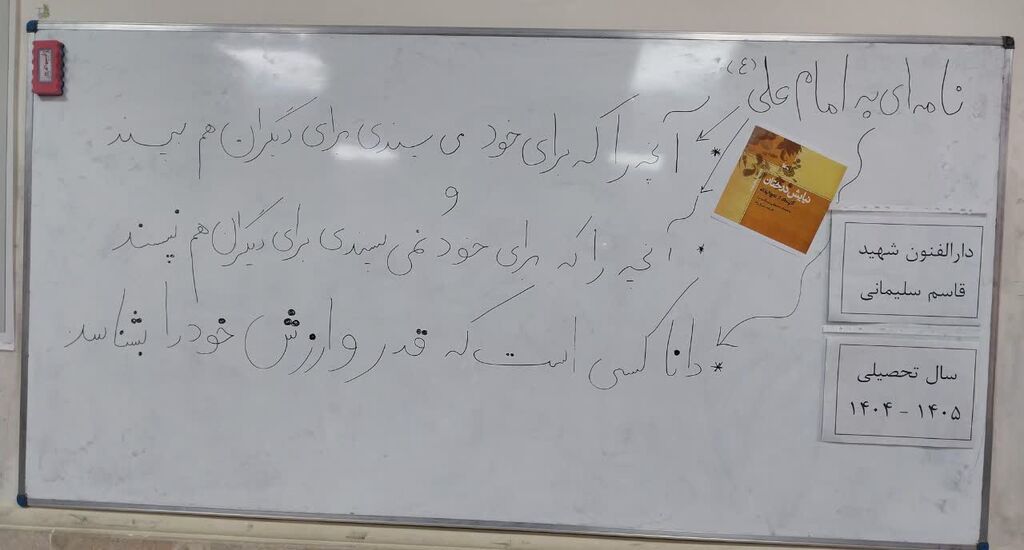 نامه ای به امام علی (ع)
* آنچه را که برای خود می پسندی برای دیگران هم بپسند
و
* آنچه را که برای خود نمی پسندی برای دیگران هم نپسند
* دانا کسی است که قدر و ارزش خود را بشناسد
دارالفنون شهید
قاسم سلیمانی
سال تحصیلی
۱۴۰۴ - ۱۴۰۵